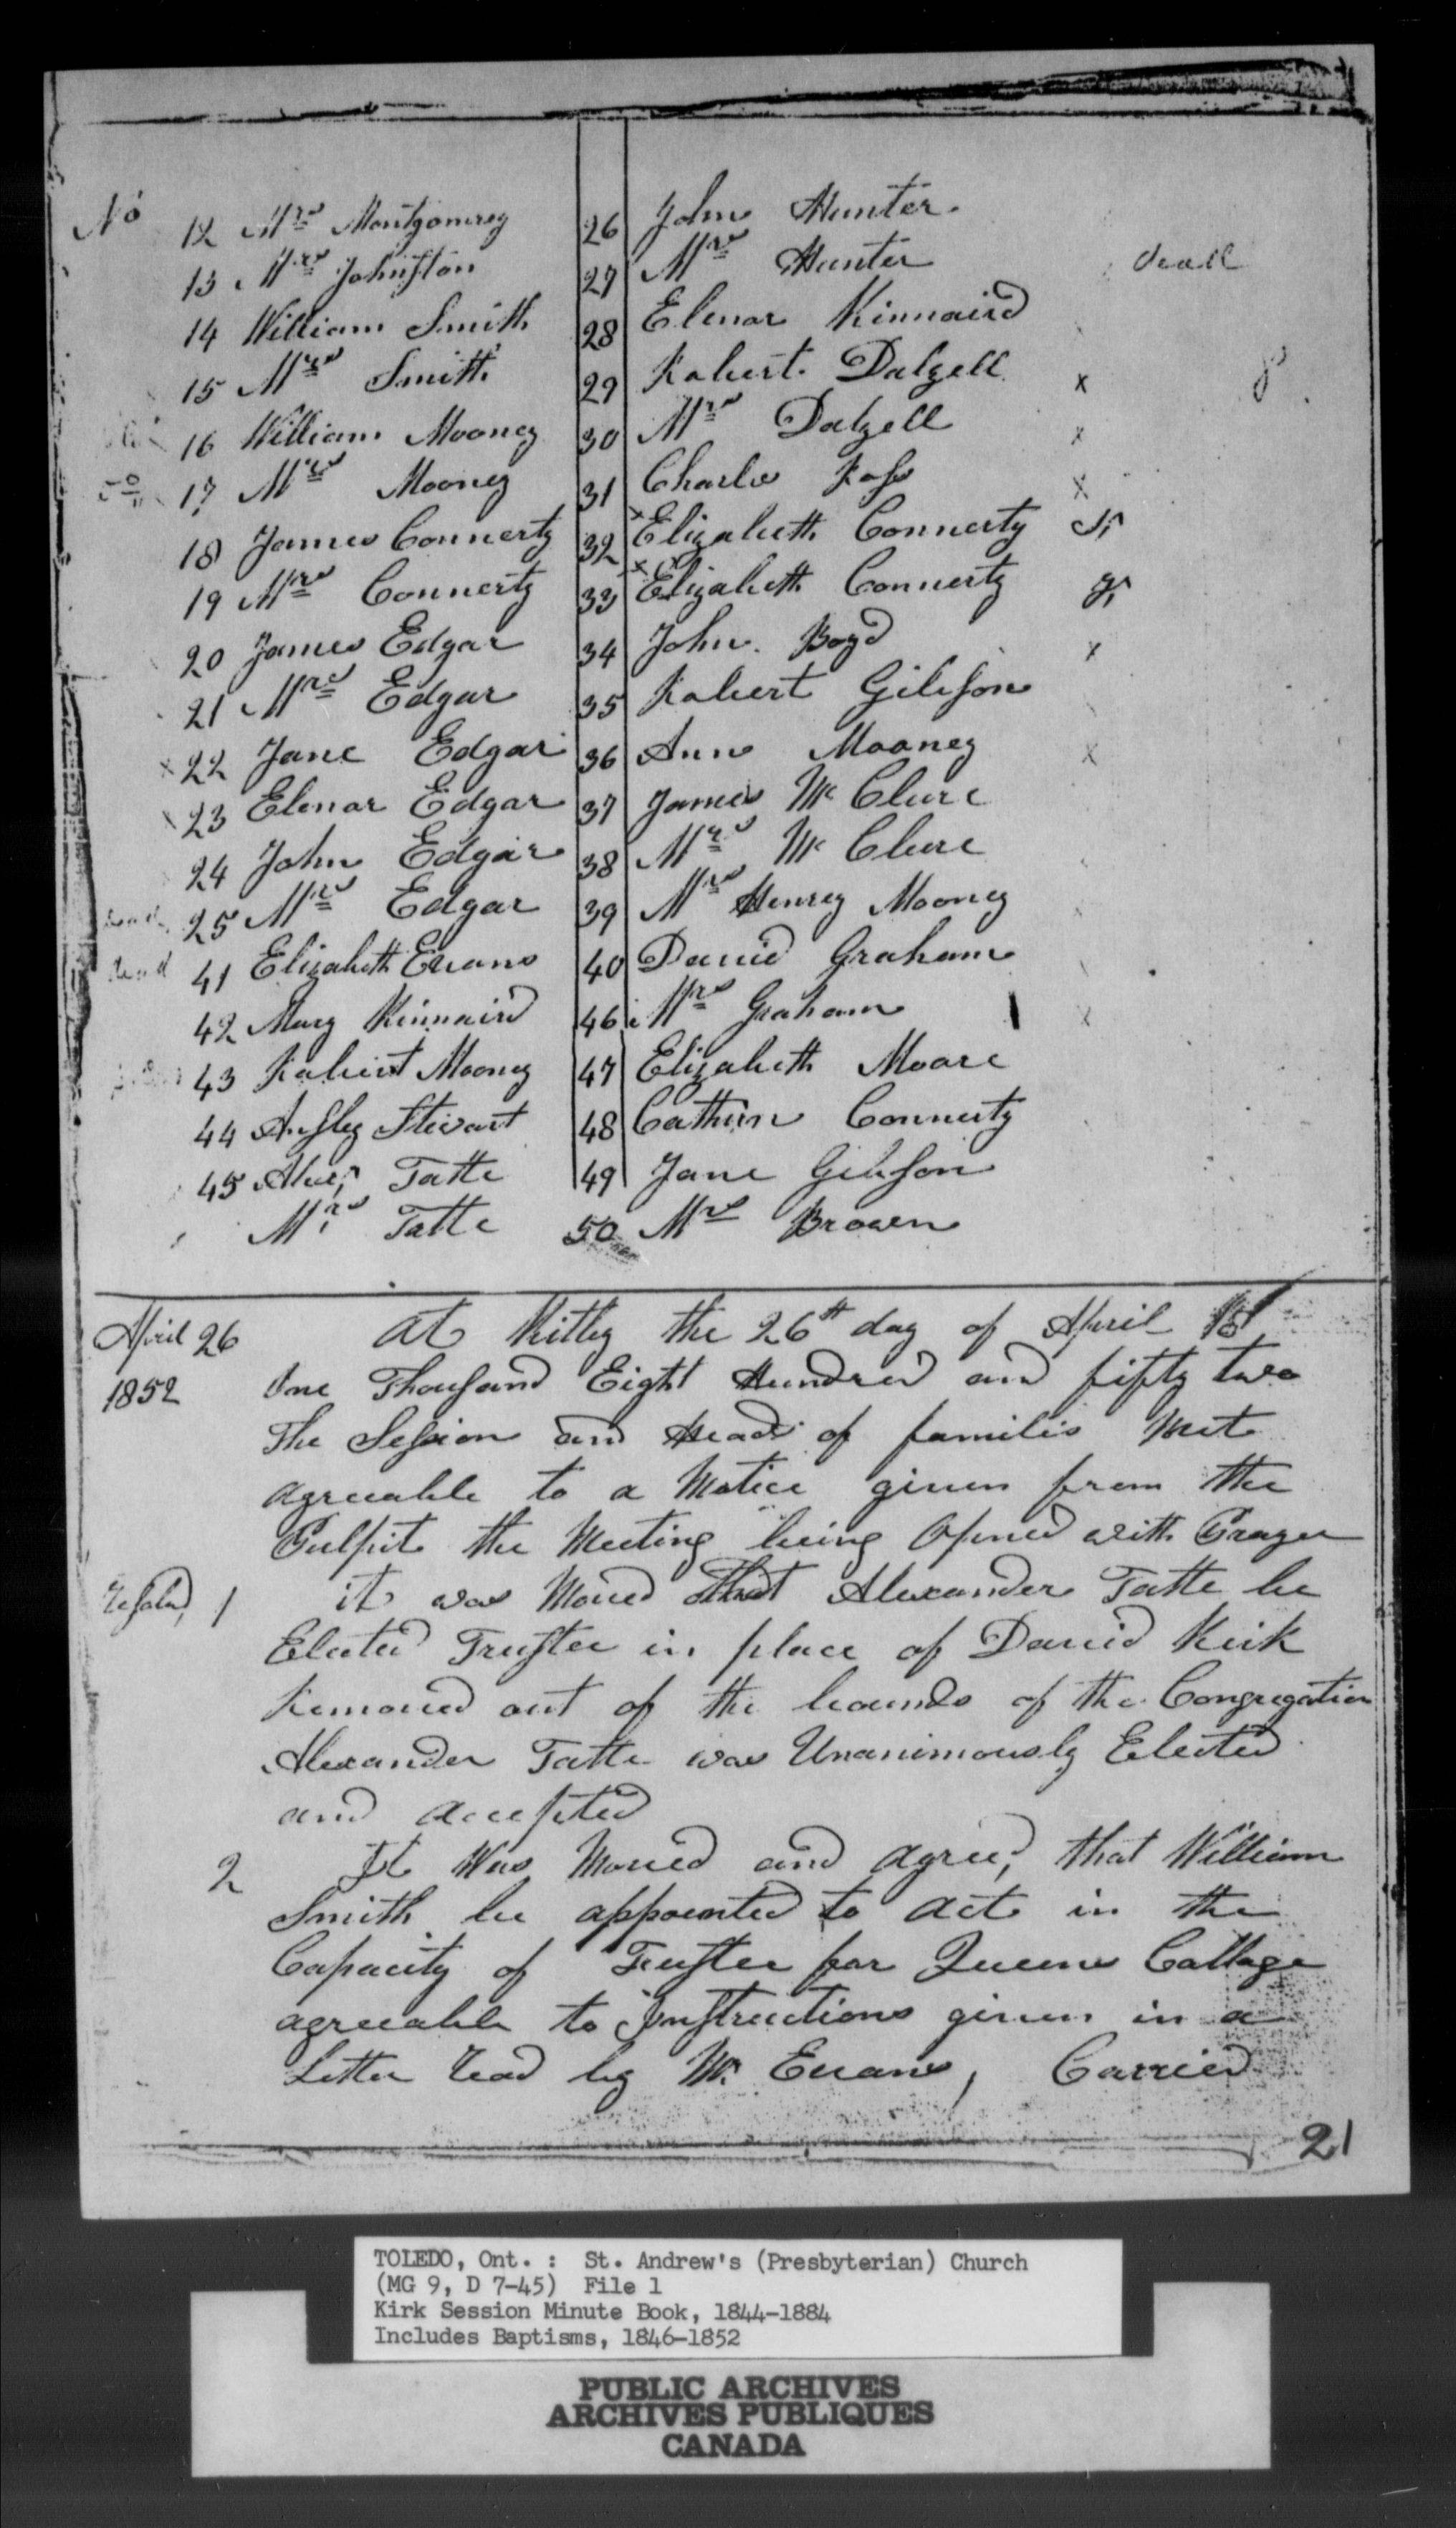 No
12 Mrs Montgomrey
13 Mrs Johnston
14 William Smith
15 Mrs Smith
16 William Mooney
17 Mrs Mooney
18 James Connerty
19 Mrs Connerty
20 James Edgar
21 Mrs Edgar
x 22 Jane Edgar
x 23 Elenar Edgar
24 John Edgar
dead 25 Mrs Edgar
dead 41 Elizabeth Evans
42 Mary Kinnaird
43 Robert Mooney
44 Ansley Stewart
45 Alexr Tatte
Mrs Tatte
26 John Hunter
27 Mrs Hunter dead
28 Elenar Kinnaird
29 Robert Dalzell x
30 Mrs Dalzell x
31 Charles Ross x
32 x Elizabeth Connerty Sr
33 x Elizabeth Connerty Jr
34 John Boyd x
35 Robert Gibson
36 Ann Mooney x
37 James Mc Clure
38 Mrs Mc Clure
39 Mrs Henrey Mooney
40 David Graham
46 Mrs Graham x
47 Elizabeth Moore
48 Cathrin Connerty
49 Jane Gibson
50 Mrs Brown
April 26 At Kitley the 26th day of April
1852 One Thousand Eight Hundred and fifty two
The Session and Heads of familis Met
agreeable to a Notice given from the
Pulpit the Meeting being Opned with Prayer
Resolvd, 1 it was Moved that Alexander Tatte be
Elected Trustee in place of David Kirk
Removed out of the bounds of the Congregation
Alexander Tatte was Unanimously Elected
and accepted
2 It Was Moved and agreed, that William
Smith be appointed to act in the
Capacity of Trustee for Queens Collage
agreeable to Instructions given in a
Letter read by Mr Evans, Carried
21
TOLEDO, Ont. : St. Andrew's (Presbyterian) Church
(MG 9, D 7-45) File 1
Kirk Session Minute Book, 1844-1884
Includes Baptisms, 1846-1852
PUBLIC ARCHIVES
ARCHIVES PUBLIQUES
CANADA